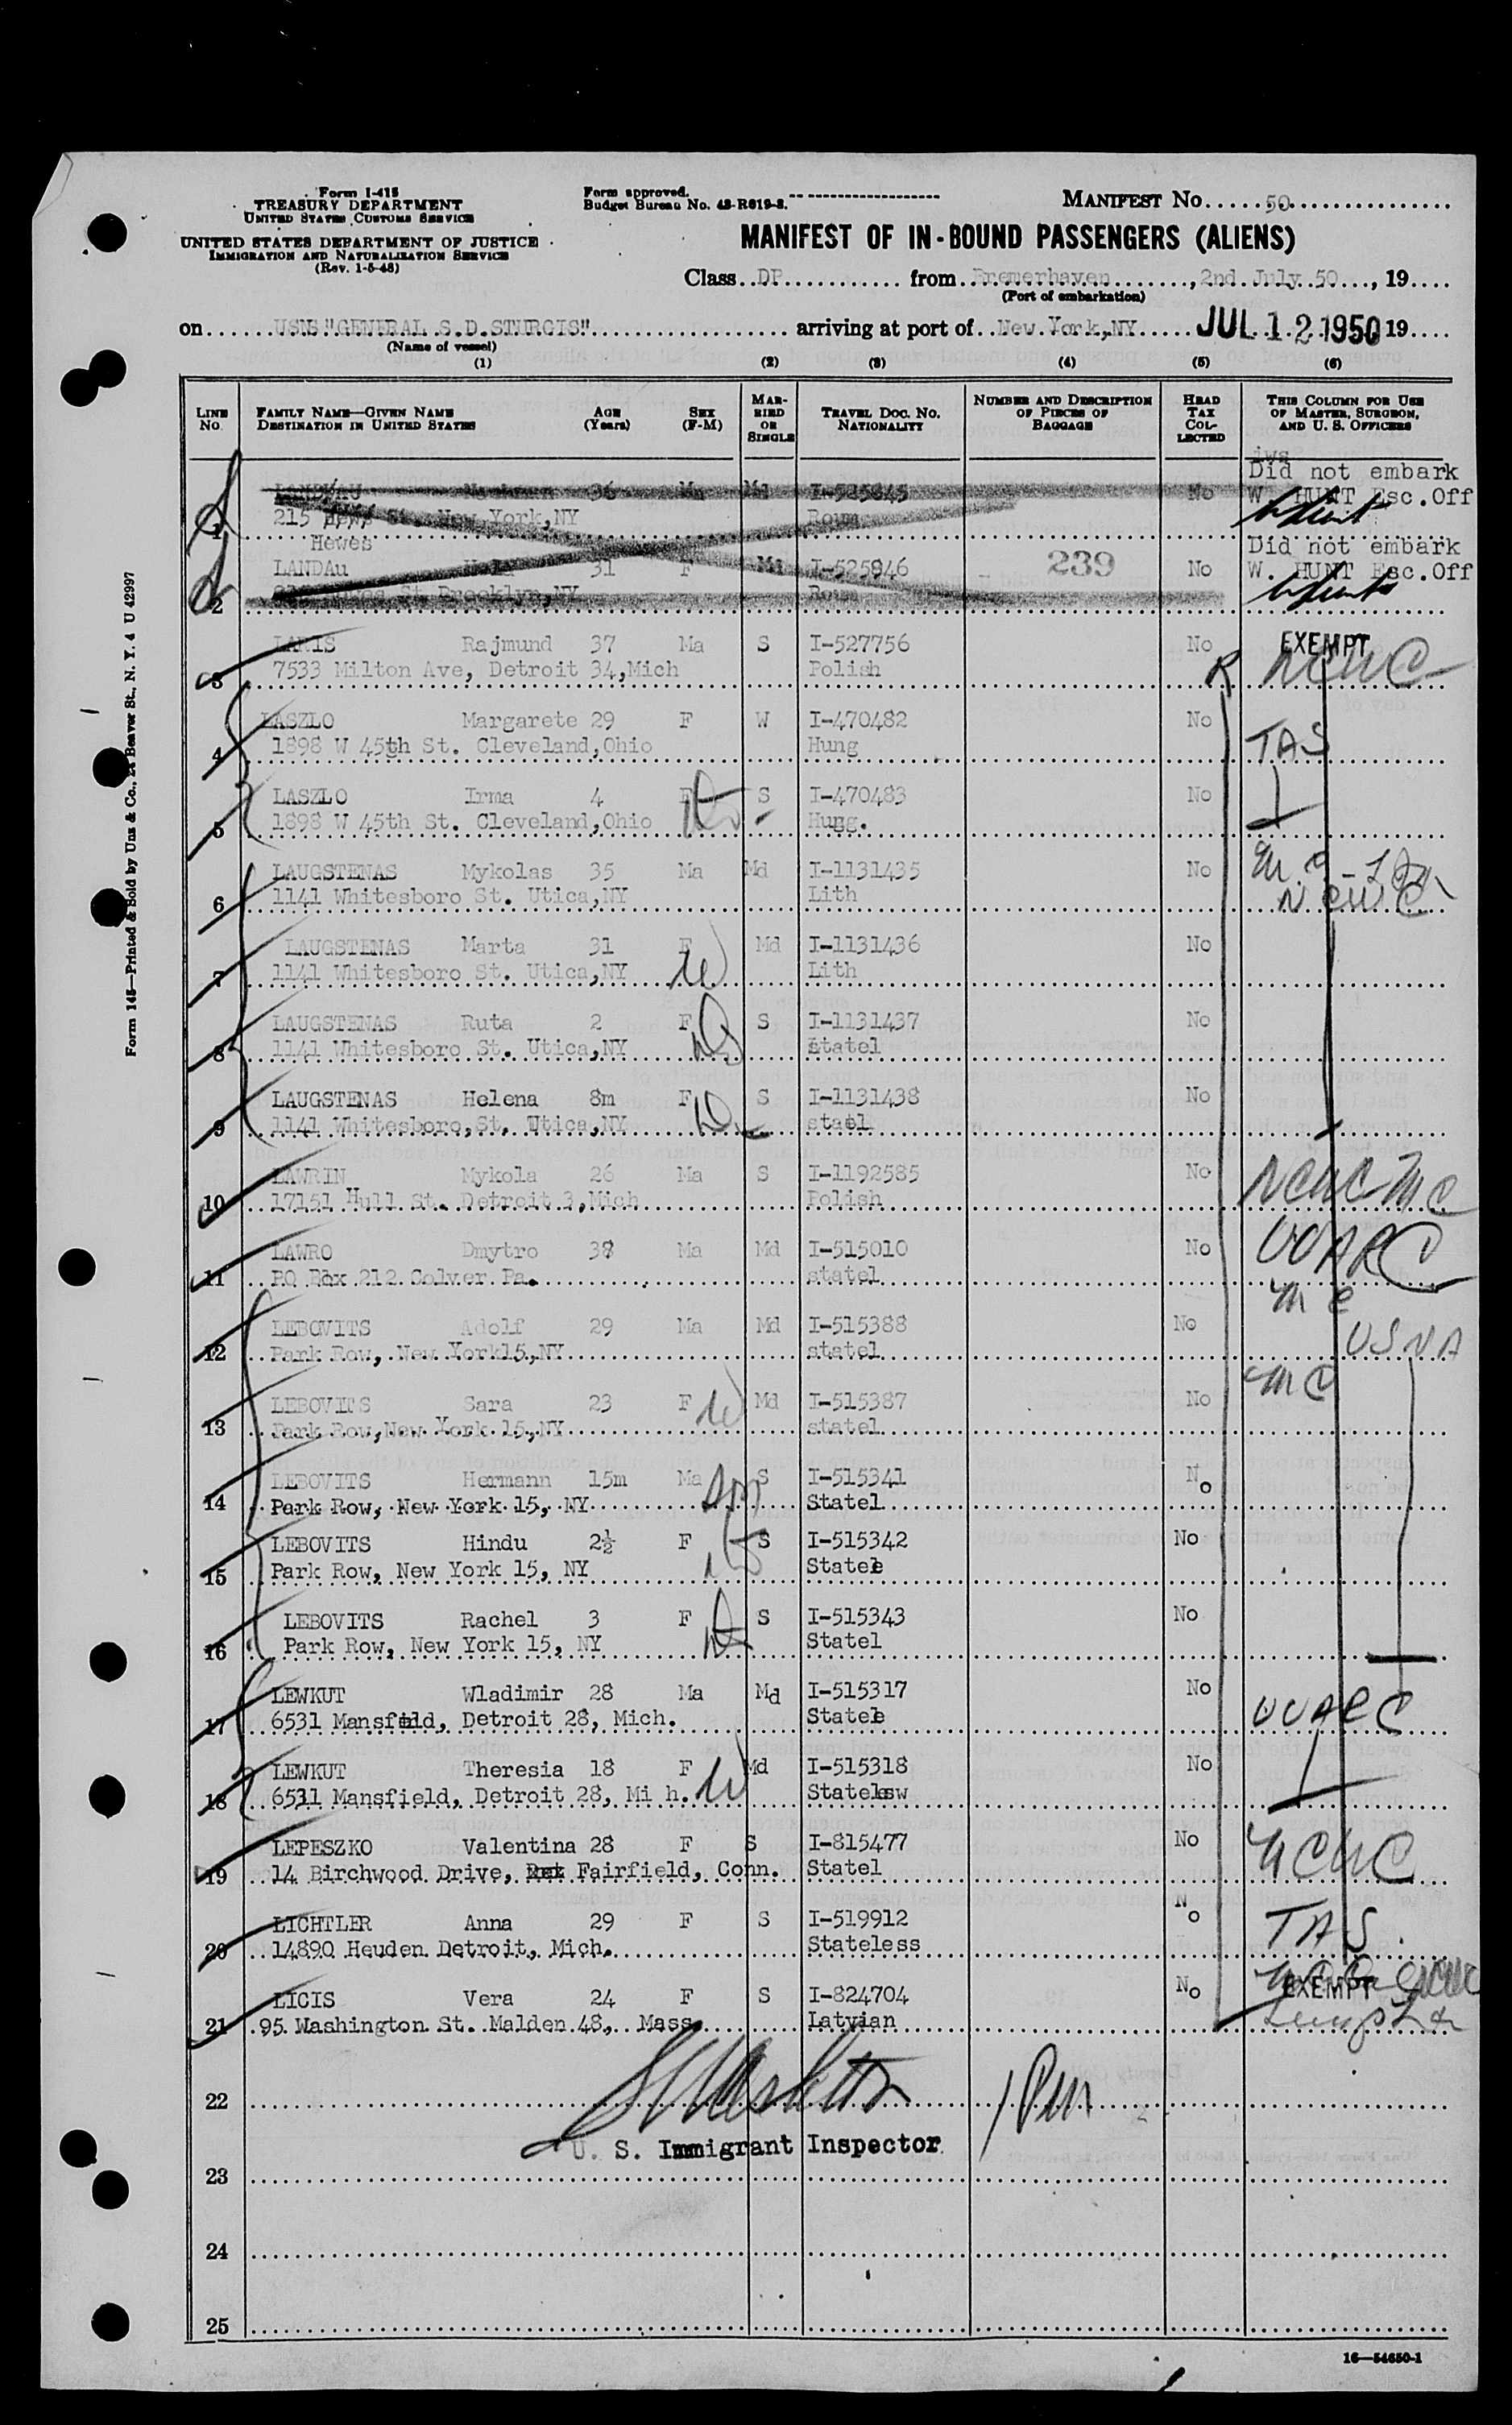 Form I-415
TREASURY DEPARTMENT
UNITED STATES CUSTOMS SERVICE
UNITED STATES DEPARTMENT OF JUSTICE
IMMIGRATION AND NATURALIZATION SERVICE
(Rev. 1-5-48)
Form approved.
Budget Bureau No. 43-R019-3.
MANIFEST No. 50
MANIFEST OF IN-BOUND PASSENGERS (ALIENS)
Class DP from Bremerhaven, 2nd July 50, 19
(Port of embarkation)
on USNS "GENERAL S.D.STURGIS" arriving at port of New York,NY JUL 12 1950 19
(Name of vessel)
(1) (2) (3) (4) (5) (6)
LINE No. FAMILY NAME—GIVEN NAME DESTINATION IN UNITED STATES AGE (Years) SEX (F-M) MARRIED OR SINGLE TRAVEL DOC. NO. NATIONALITY NUMBER AND DESCRIPTION OF PIECES OF BAGGAGE HEAD TAX COLLECTED THIS COLUMN FOR USE OF MASTER, SURGEON, AND U. S. OFFICERS
jws
Did not embark
1 LANDAU 36 Ma Md I-525845 No W. HUNT Esc.Off
215 Hews St. New York,NY Roum
Hewes
Did not embark
2 LANDAu 31 F Md I-525846 239 No W. HUNT Esc.Off
St Brooklyn,NY Roum
3 LARIS Rajmund 37 Ma S I-527756 No EXEMPT
7533 Milton Ave, Detroit 34,Mich Polish R NCWC
4 LASZLO Margarete 29 F W I-470482 No
1898 W 45th St. Cleveland,Ohio Hung TAS
5 LASZLO Irma 4 F S I-470483 No
1898 W 45th St. Cleveland,Ohio Hung.
6 LAUGSTENAS Mykolas 35 Ma Md I-1131435 No
1141 Whitesboro St. Utica,NY Lith NCWC
7 LAUGSTENAS Marta 31 F Md I-1131436 No
1141 Whitesboro St. Utica,NY Lith W
8 LAUGSTENAS Ruta 2 F S I-1131437 No
1141 Whitesboro St. Utica,NY statel
9 LAUGSTENAS Helena 8m F S I-1131438 No
1141 Whitesboro,St. Utica,NY statel
10 LAWRIN Mykola 26 Ma S I-1192585 No
17151 Hull St. Detroit 3,Mich Polish NCWC MC
11 LAWRO Dmytro 38 Ma Md I-515010 No UUARC
PO Box 212 Colver Pa. statel
MC
12 LEBOVITS Adolf 29 Ma Md I-515388 No
Park Row, New York15,NY statel USNA
13 LEBOVITS Sara 23 F W Md I-515387 No MC
Park Row,New York 15,NY statel
14 LEBOVITS Hermann 15m Ma son S I-515341 No
Park Row, New York 15, NY Statel
15 LEBOVITS Hindu 2½ F S I-515342 No
Park Row, New York 15, NY Statele
16 LEBOVITS Rachel 3 F S I-515343 No
Park Row, New York 15, NY Statel
17 LEWKUT Wladimir 28 Ma Md I-515317 No
6531 Mansfeild, Detroit 28, Mich. Statele UUARC
18 LEWKUT Theresia 18 F W Md I-515318 No
6531 Mansfield, Detroit 28, Mi h. Statelesw
19 LEPESZKO Valentina 28 F S I-815477 No
14 Birchwood Drive, Fairfield, Conn. Statel NCWC
20 LICHTLER Anna 29 F S I-519912 No
14890 Heuden Detroit, Mich. Stateless TAS
21 LICIS Vera 24 F S I-824704 No EXEMPT
95 Washington St. Malden 48, Mass. Latvian
22
U. S. Immigrant Inspector
23
24
25
16—54650-1
Form 145—Printed & Sold by Unz & Co., 24 Beaver St., N. Y. 4 U 42997